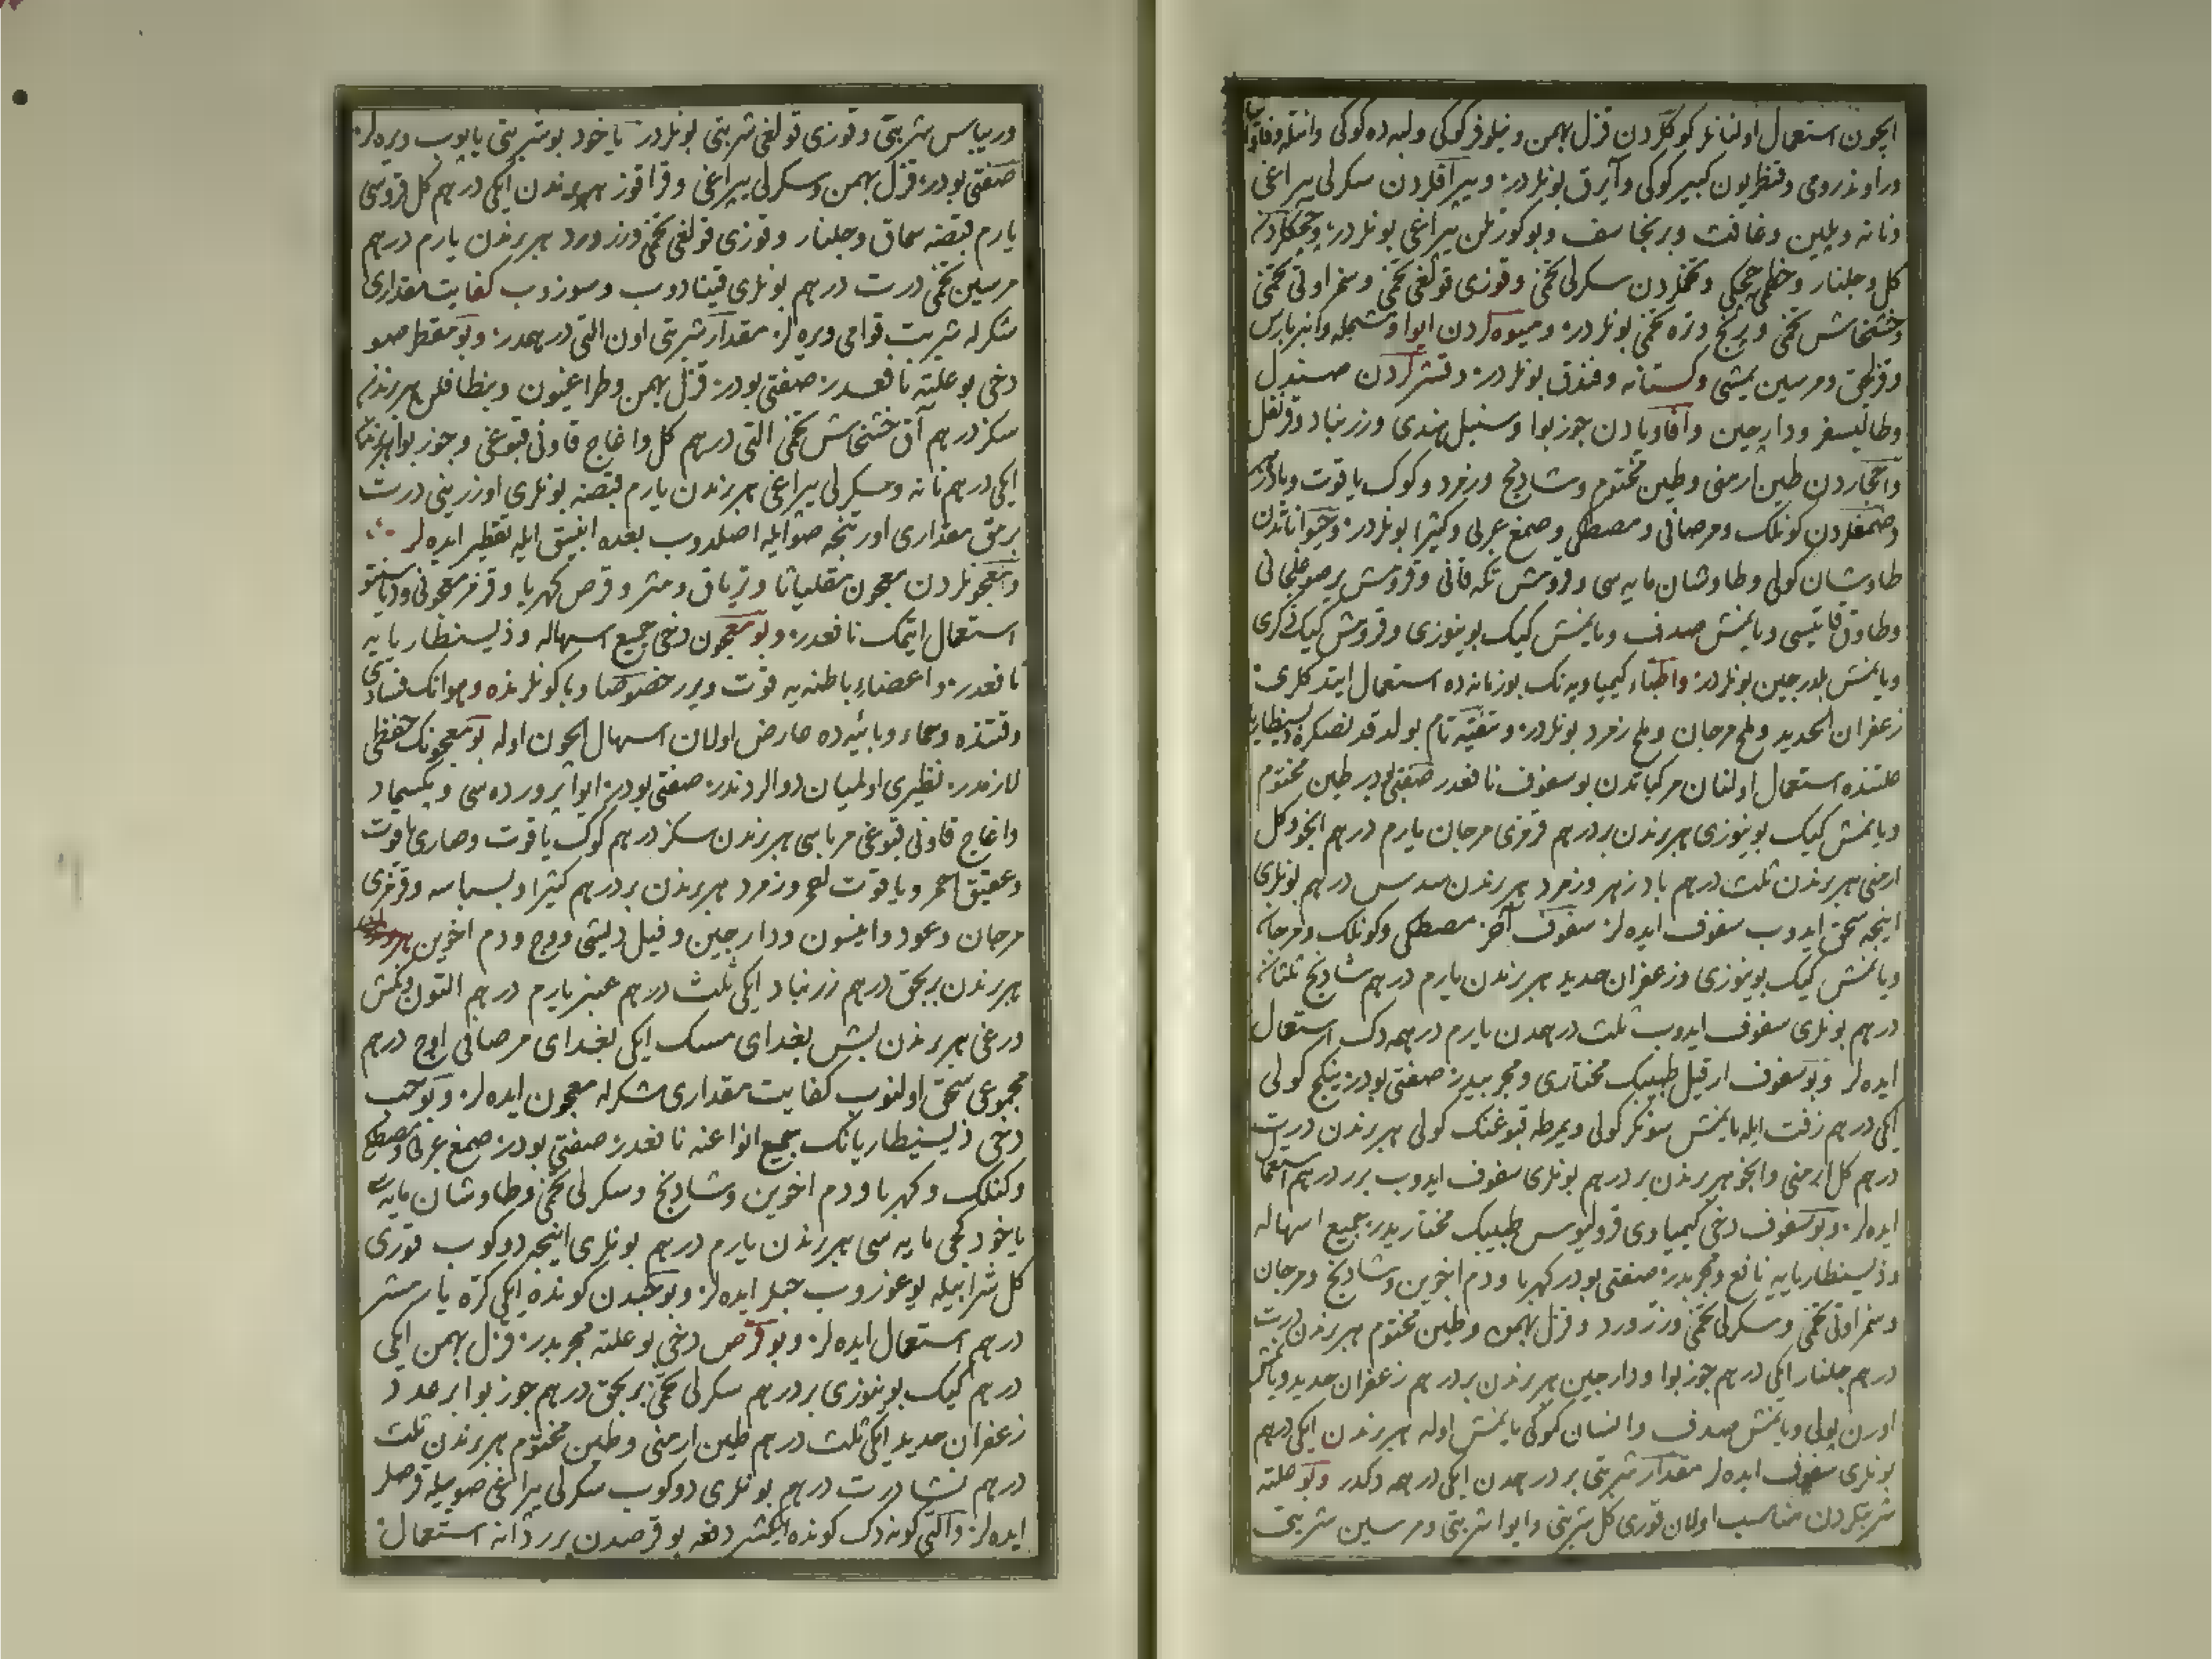 ایچون استعمال اولنانلر کوکلردن قزل بهمن و نیلوفر کوکی و لبه ده کوکی وانتله وقاو
دراوند رومی وقنطریون کبیر کوکی وآیرق بونلردر: ویپراقلردن سکرلی پیراغی
ونانه ویلین وغافث وبرنجاسف وبوکورتلن پیراغی بونلردر: وچیچکلردن
کل وجلنار وخطمی چیچکی وتخملردن سکرلی تخمی وقوزی قولغی تخمی وسخر اوتی تخمی
وخشخاش تخمی وپرنج وتره تخمی بونلردر: ومیوه لردن ایوا ومشمله وانبرباریس
وقزلجق ومرسین یمشی وکستانه وفندق بونلردر: وقشرلردن صندل
وطالیسفر ودارچین وآفاویادن جوز بوا وسنبل هندی وزرنباد وقرنفل
واحجاردن طین ارمنی وطین مختوم وشادنج وزمرد وکوک یاقوت وبادزهر
وصمغلردن کونلک ومرصافی ومصطکی وصمغ عربی وکثیرا بونلردر: وحیواناتدن
طاوشان کولی وطاوشان مایه سی وقورومش تکه قانی وقرومش پرصوغلجانی
وطاوق قاتیسی ویانمش صدف ویانمش کیک بوینوزی وقرومش کیک ذکری
ویانمش بلدرجین بونلردر: واطباء کیمیاویه نک بوزمانه ده استعمال ایتدکلری:
زعفران الحدید وملح مرجان وملح زمرد بونلردر: وتنقیه تام بولدقدنصکره ذیسنطاریا
علتنده استعمال اولنان مرکباتدن بوسفوف نافعدر صفتی بودر طین مختوم
ویانمش کیک بوینوزی هر برندن بر درهم قرمزی مرجان یارم درهم انجو وکل
ارمنی هر برندن ثلث درهم بادزهر وزمرد هر برندن سدس درهم بونلری
اینجه سحق ایدوب سفوف ایده لر: سفوف آخر: مصطکی وکونلک ومرجان
ویانمش کیک بوینوزی وزعفران حدید هر برندن یارم درهم شادنج ثلثان
درهم بونلری سفوف ایدوب ثلث درهمدن یارم درهمه دک استعمال
ایده لر وبو سفوف ارقیل طبیبک مختاری ومجربیدر: صفتی بودر: ینکج کولی
ایکی درهم زفت ایله یانمش سونکر کولی ویمرطه قبوغنک کولی هر برندن درت
درهم کل ارمنی وانجو هر برندن بر درهم بونلری سفوف ایدوب برر درهم استعمال
ایده لر: وبو سفوف دخی کیمیاوی قرولیوس طبیبک مختاریدر: جمیع اسهاله
وذیسنطاریایه نافع ومجربدر: صفتی بودر کهربا ودم اخوین وشادنج ومرجان
وسخر اوتی تخمی وسکرلی تخمی وزرورد وقزل بهمن وطین مختوم هر برندن درت
درهم جلنار ایکی درهم جوز بوا ودارچین هر برندن بر درهم زعفران حدید ویانمش
اورن پولی ویانمش صدف وانسان کوکی یانمش اوله هر برندن ایکی درهم
بونلری سفوف ایده لر مقدار شربتی بر درهمدن ایکی درهمه دکدر وبو علته
شربتلردن مناسب اولان قوری کل شربتی وایوا شربتی ومرسین شربتی
وریباس شربتی وقوزی قولغی شربتی بونلردر: یاخود بوشربتی یاپوب ویره لر:
صفتی بودر: قزل بهمن وسکرلی پیراغی وقرا قوز هر برندن ایکی درهم کل قروسی
یارم قبضه سماق وجلنار وقوزی قولغی تخمی وزرورد هر برندن یارم درهم
مرسین تخمی درت درهم بونلری قینادوب وسوزوب کفایت مقداری
شکرله شربت قوامی ویره لر: مقدار شربتی اون التی درهمدر: وبو مقطر صو
دخی بوعلته نافعدر: صفتی بودر: قزل بهمن وطراغیون وبنطافلن هر برندن
سکز درهم آق خشخاش تخمی التی درهم کل واغاج قاونی قبوغی وجوز بوا هر برندن
ایکی درهم نانه وسکرلی پیراغی هر برندن یارم قبضه بونلری اوزرینی درت
برمق مقداری اورتنجه صو ایله اصلدوب بعده انبیق ایله تقطیر ایده لر
ومعجونلردن معجون مقلیاثا وتریاق ومثر وقرص کهربا وقرمز معجونی ودیاسنتو
استعمال ایتمک نافعدر: وبو معجون دخی جمیع اسهاله وذیسنطاریایه
نافعدر: واعضاء باطنه یه قوت ویرر خصوصا وبا کونلرنده وهوانک فسادی
وقتنده وحماء وبائیه ده عارض اولان اسهال ایچون اوله بو معجونک حفظی
لازمدر: نظیری اولمیان دوالردندر: صفتی بودر: ایوا پرورده سی وبکسماد
واغاج قاونی قبوغی مرباسی هر برندن سکز درهم کوک یاقوت وصاری یاقوت
وعقیق احمر ویاقوت لعل وزمرد هر برندن بر درهم کثیرا وبسباسه وقرمزی
مرجان وعود وانیسون ودارچین وفیل دیشی وج ودم اخوین
هر برندن بربچق درهم زرنباد ایکی ثلث درهم عنبر یارم درهم التون وکمش
ورغی هر برندن بش بغدای مسک ایکی بغدای مرصافی اوچ درهم
مجموعی سحق اولنوب کفایت مقداری شکرله معجون ایده لر: وبو حب
دخی ذیسنطاریانک جمیع انواعنه نافعدر: صفتی بودر: صمغ عربی ومصطکی
وکنلک وکهربا ودم اخوین وشادنج وسکرلی تخمی وطاوشان مایه سی
یاخود کجی مایه سی هر برندن یارم درهم بونلری اینجه دوکوب قوری
کل شرابیله یوغوروب حبلر ایده لر: وبو حبدن کونده ایکی کره یارمشر
درهم استعمال ایده لر: وبو قرص دخی بوعلته مجربدر: قزل بهمن ایکی
درهم کیک بوینوزی بر درهم سکرلی تخمی بربچق درهم جوز بوا بر عدد
زعفران حدید ایکی ثلث درهم طین ارمنی وطین مختوم هر برندن ثلث
درهم نشا درت درهم بونلری دوکوب سکرلی پیراغی صوییله قرصلر
ایده لر: والتی کونه دک کونده ایکیشر دفعه بو قرصدن برر دانه استعمال: